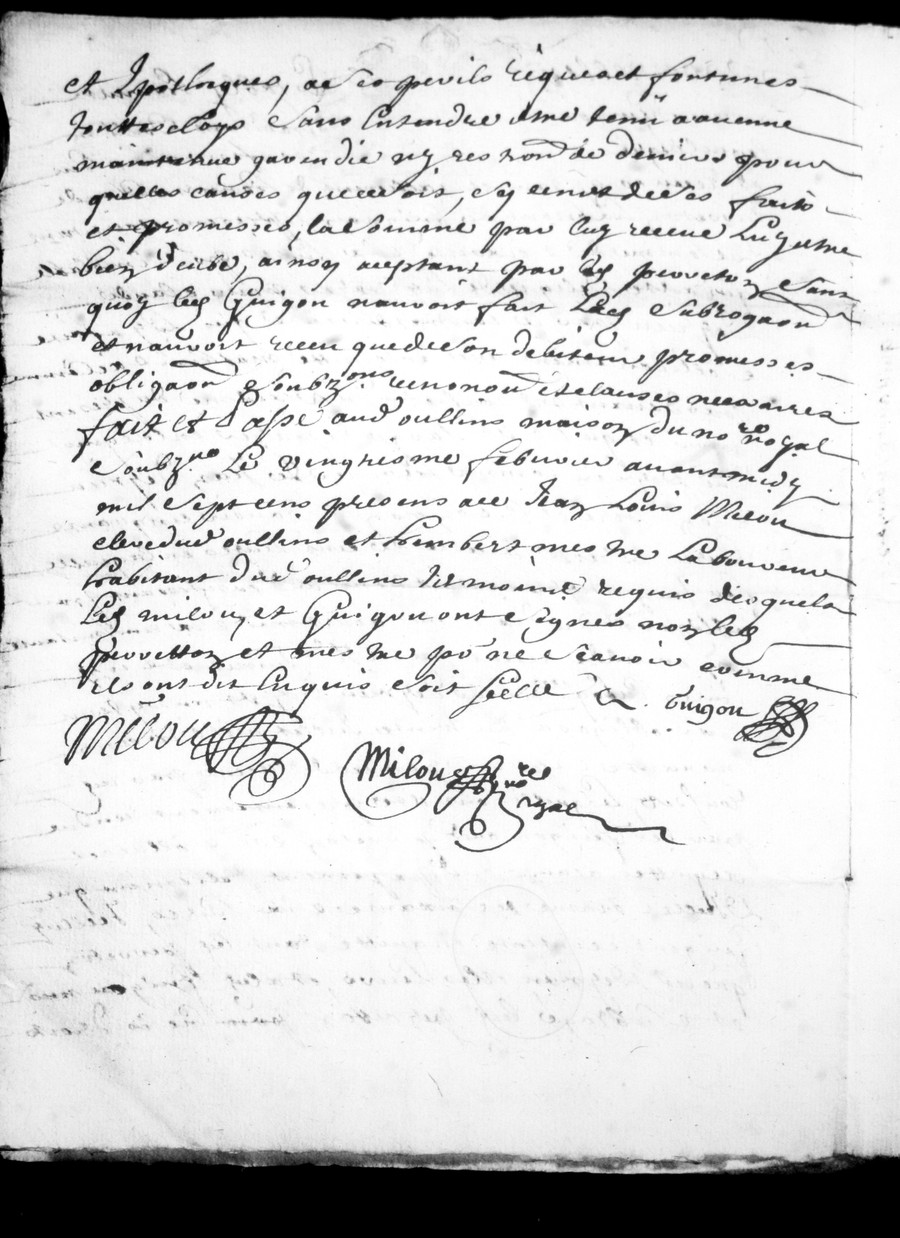 et Ipotheques, a ses perils risques et fortunes
touttesfoys sans entendre estre tenu a aucune
maintenue garendie ny res᷉on de deniers pour
quelles causes que ce soit, sy ce n'est de ses faits
et promesses, la somme par luy receue luy estre
bien deube, ainsy aceptant par led perretton sans
quoy led Guigou nauroit fait lad subrogaon
et nauroit receu que de son debiteur promesses
obligaon soubzons renonon et clauses necessaires
fait et Passé aud oullins maison du nore royal
soubzne le vingtiesme febvrier avant midy
mil sept cens presens a ce Jean Louis Milou
clerc dud oullins et humbert mestre laboureur
habitant dud oullins tesmoins requis desquels
Led milou et Guigou ont signes non led
perretton et mestre po ne scavoir comme
ils ont dit Enquis soit scellé &. Guigou
Milou
Milou nore
royal